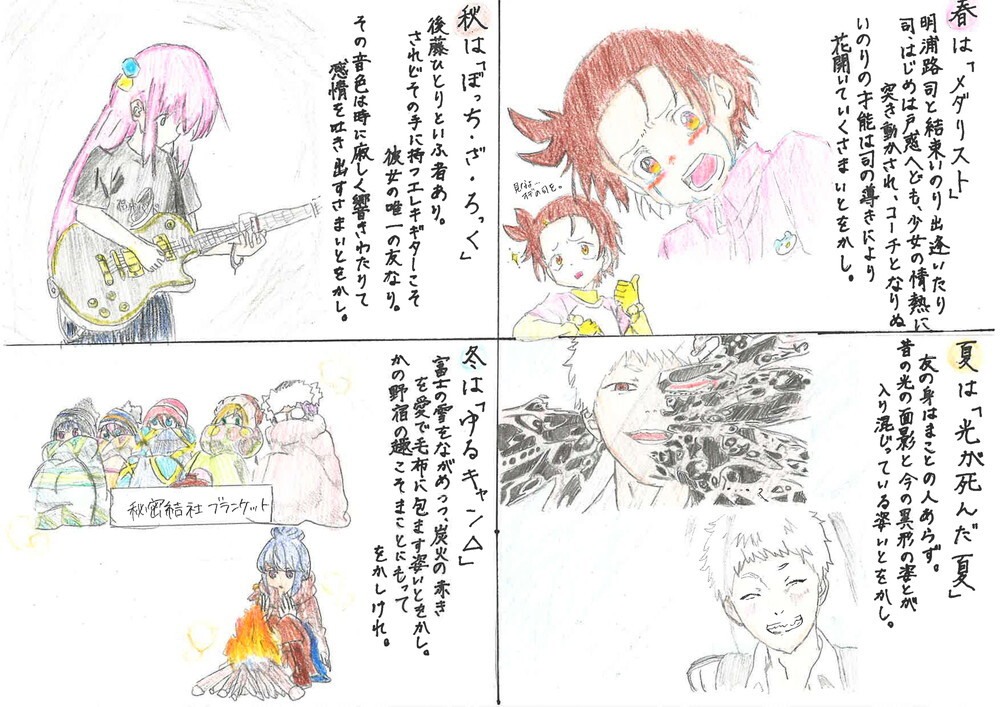 春は「メダリスト」
明浦路 司と結束いのり出逢いたり
司、はじめは戸惑へども、少女の情熱に
突き動かされ、コーチとなりぬ
いのりの才能は司の導きにより
花開いていくさまいとをかし。
夏は「光が死んだ夏」
友の身はまことの人あらず。
昔の光の面影と今の異形の姿とが
入り混じっている姿いとをかし。
秋は「ぼっち・ざ・ろっく」
後藤ひとりといふ者あり。
されどその手に持つエレキギターこそ
彼女の唯一の友なり。
その音色は時に寂しく響きわたりて
感情を吐き出すさまいとをかし。
冬は「ゆるキャン△」
富士の雪をながめつつ、炭火の赤き
を愛で毛布に包まず姿いとをかし。
かの野宿の趣こそまことにもって
をかしけれ。
秘密結社ブランケット